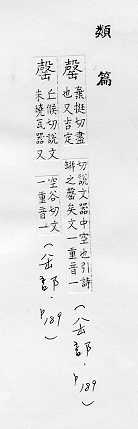 類篇
罄 棄挺切盡也又吉定切說文器中空也引詩缾之罄矣文一重音一 (缶部.P189)
丘候切說文未燒瓦器又空谷切文一重音一 (缶部.P189)